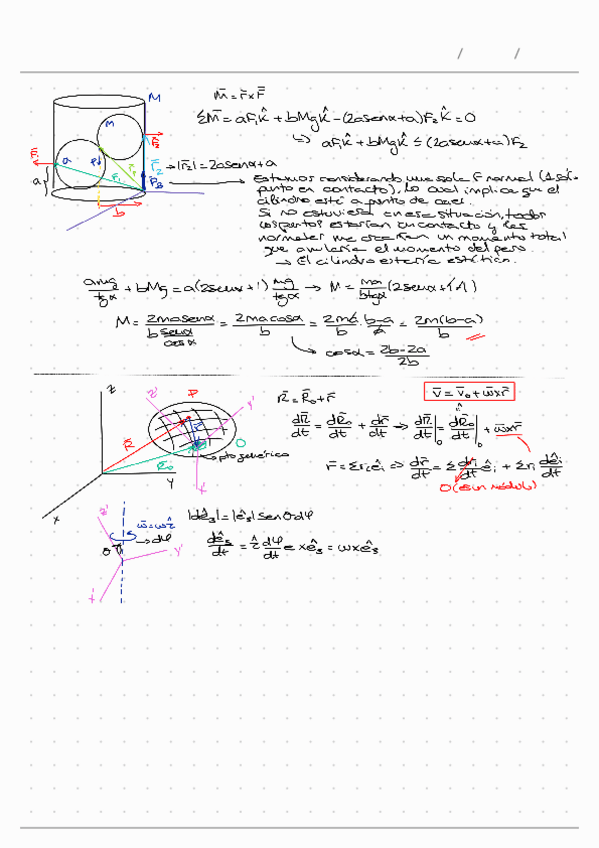 / /
M̄ = r̄ x F̄
ΣM̄ = aF₁k̂ + bMgk̂ - (2asenα+a)F₂k̂ = 0
↳ aF₁k̂ + bMgk̂ ≤ (2asenα+a)F₂
→ |r̄₂| = 2asenα+a
M
m
a
a
b
F̄₁
F̄₂
r̄₂
r̄₁
Estamos considerando una sola F normal (1 solo
punto en contacto), lo cual implica que el
cilindro esté a punto de caer.
Si no estuviera en esa situación, todos
los puntos estarían en contacto y las
normales me crearían un momento total
que anularía el momento del peso
→ El cilindro estaría estático.
amg/tgα + bMg = a(2senα+1) mg/tgα → M = ma/btgα (2senα+1-1)
M = 2masenα / b senα/cosα = 2macosα/b = 2ma/b · b-a/a = 2m(b-a)/b
↳ cosα = 2b-2a/2b
z
z'
P
y'
R̄
R̄₀
O
→ pto genérico
y
x'
x
R̄ = R̄₀ + r̄
v̄ = v̄₀ + ω̄xr̄
dR̄/dt = dR̄₀/dt + dr̄/dt → dR̄/dt|₀ = dR̄₀/dt|₀ + ω̄xr̄
r̄ = Σrᵢêᵢ => dr̄/dt = Σ drᵢ/dt êᵢ + Σrᵢ dêᵢ/dt
0 (es un módulo)
z'
ω̄ = ωτ̂
→ dφ
θ
y'
x'
|dê₃| = |ê₃| senθdφ
dê₃/dt = τ̂ dφ/dt x ê₃ = ωxê₃